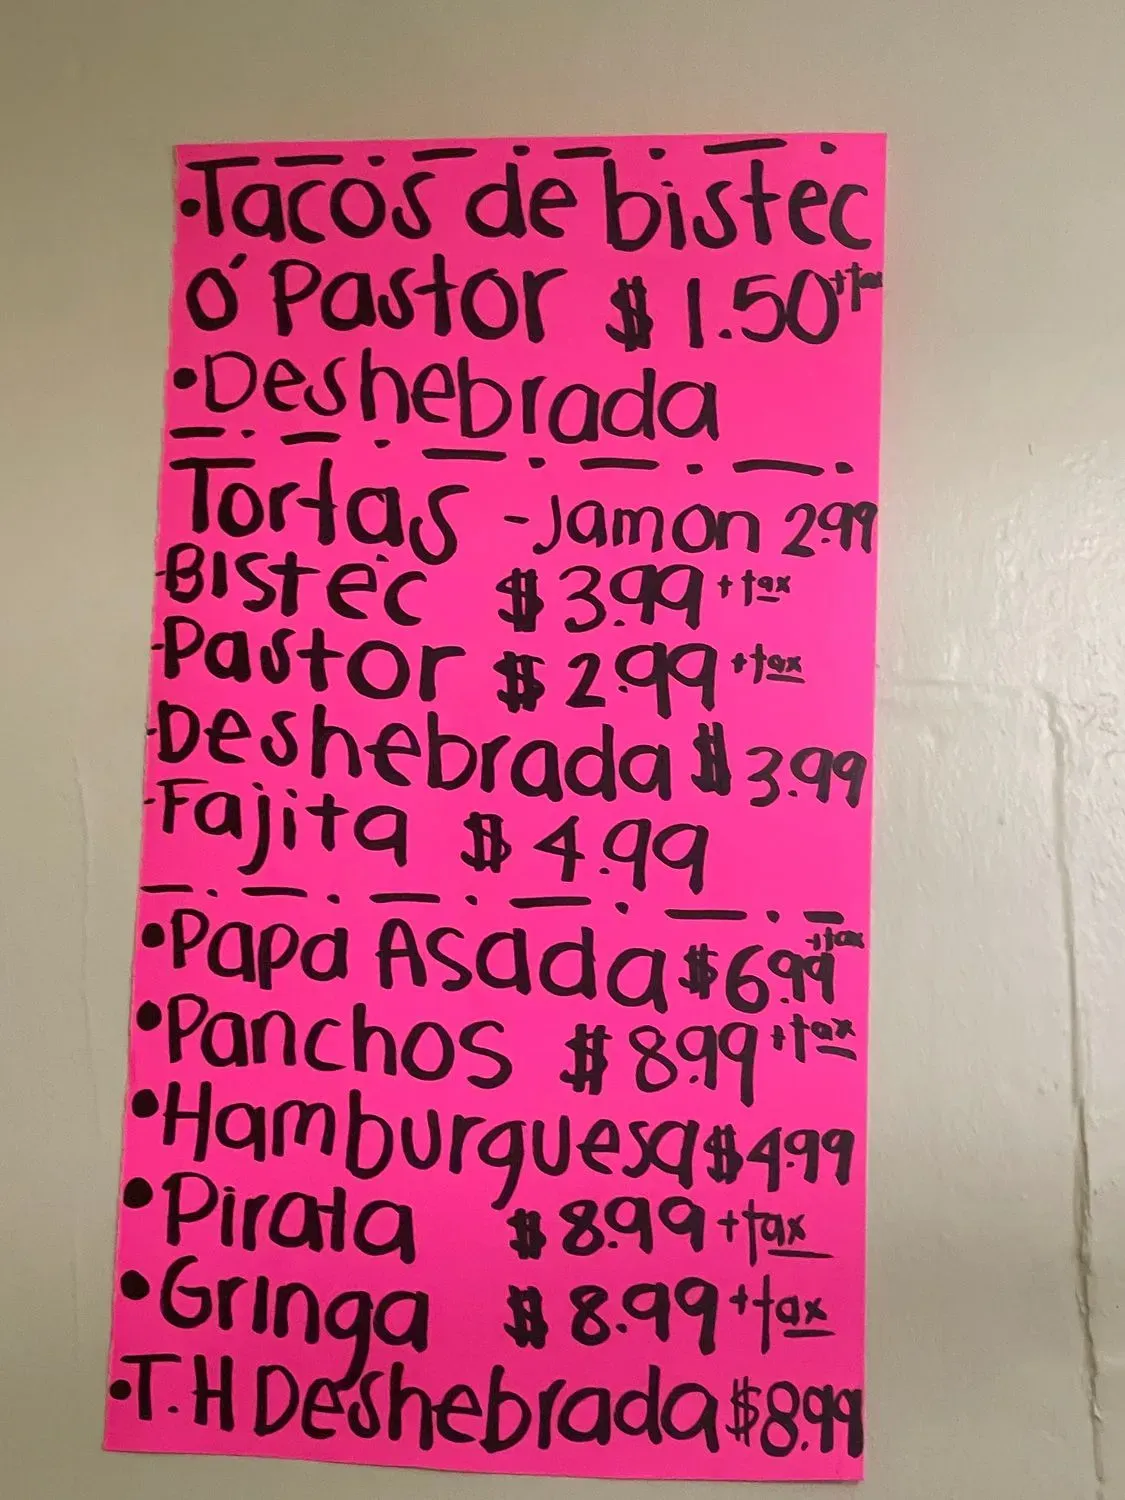 •Tacos de bistec
ó Pastor $1.50 +tax
•Deshebrada
Tortas -Jamon 2.99
-Bistec $3.99 +tax
-Pastor $2.99 +tax
-Deshebrada $3.99
-Fajita $4.99
•Papa Asada $6.99 +tax
•Panchos $8.99 +tax
•Hamburguesa $4.99
•Pirata $8.99 +tax
•Gringa $8.99 +tax
•T.H Deshebrada $8.99